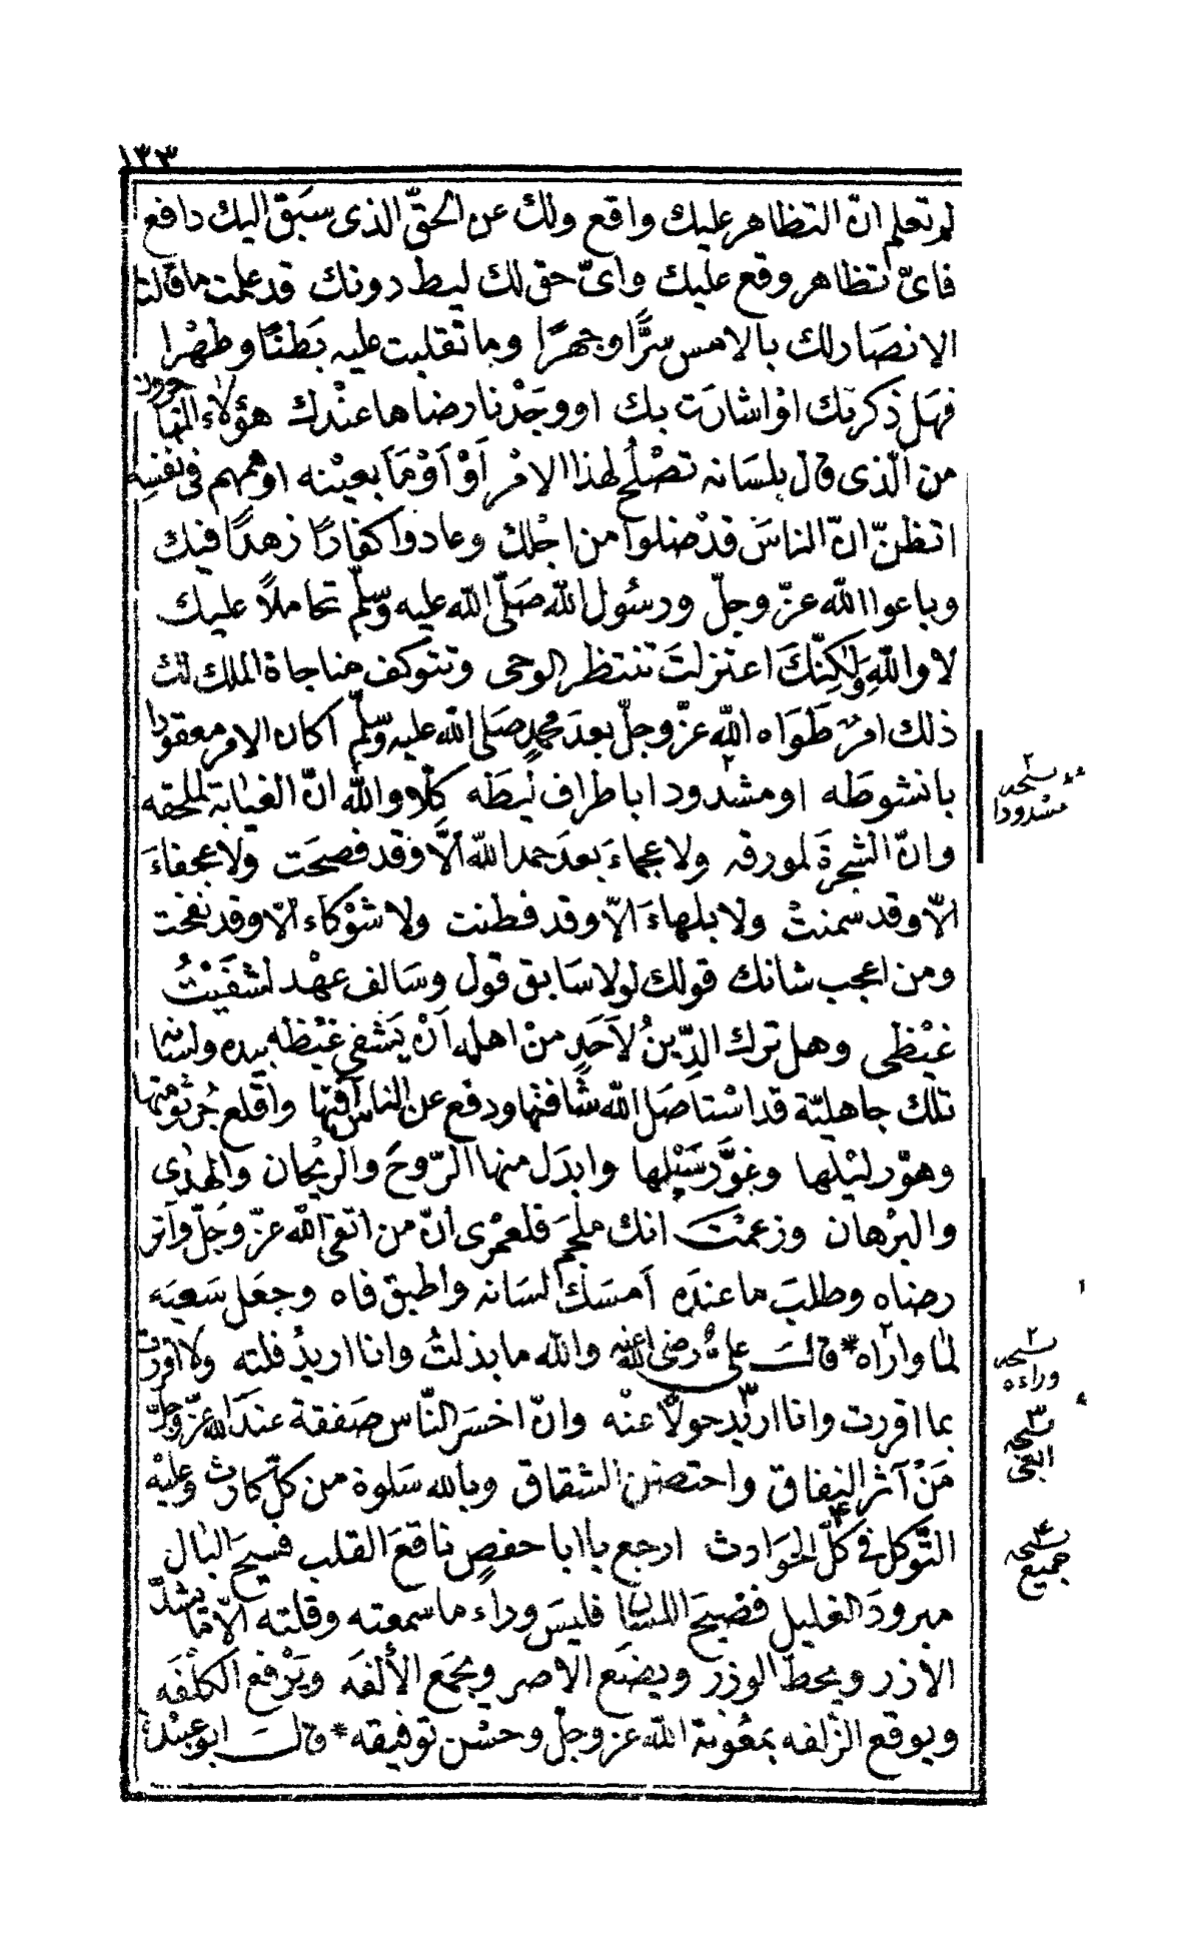 ١٣٣
لم تعلم انّ التظاهر عليك واقع ولك عن الحقّ الذى سبق اليك دافع
فاىّ تظاهر وقع عليك واىّ حق لك ليط دونك قد علمت ما قالت
الانصار لك بالامس سرًّا وجهرًا وما تقلبت عليه بَطنًا وظهْرا
فهَل ذكرتك اوْ اشارَت بك او وجَدْنا رضاها عنْدك هؤلاء المهاجرون
من الّذى قال بلسَانه تصْلُح لهذا الامْر أَوْ أَوْمَأَ بعيْنه او همهم فى نفسِه
اتظنّ انّ الناسَ قدْ ضلوا من اجْلك وعادوا كفارًا زهدًا فيك
وباعوا الله عزّ وجلّ ورسُول الله صَلّى الله عليه وسلّم تحاملاً عليك
لا واللهِ ولٰكِنّكَ اعتزلتَ تنتظر الوحى وتتوكف مناجاة الملك لك
ذلك امرٌ طَوَاه الله عزّ وجلّ بعدَ محمدٍ صَلى الله عليه وسلّم أكان الامر معقودا
بانشوطَه او مشدودا باطراف ليطَه كلّا والله انّ الغيابة لملحقه
وانّ الشجرةَ لمورقه ولا عجماءَ بعدَ حمد الله الّا وقد فصحَت ولا عجفاءَ
الّا وقد سمنتْ ولا بلهاءَ الّا وقد فطنت ولا شوْكاء الّا وقد نفحت
ومن اعجب شانك قولك لولا سَابق قول وسَالف عهْد لشفَيْتُ
غيْظى وهل ترك الدِّينُ لاَحَدٍ منْ اهله أنْ يَشفى غيْظه بيده ولسَانه
تلك جاهليّة قد اسْتاصَل الله شافتها ودفع عن الناس آفتها واقْلع جُرثومتها
وهوّر ليْلها وغوَّر سَيْلها وابدَل منها الرّوحَ والريْحان والهدى
والبرْهان وزعمْتَ انك ملجَم فلعمْرى انّ من اتقى الله عزّ وجَلّ وآثر
رضاه وطلبَ ما عندَه أمسَك لسَانه واطبق فاه وجعَل سَعيَه
لما واراه * قال علىّ رضى الله عنه والله ما بذلتُ وانا اريدُ فلته ولا اقررت
بما اقررت وانا اريد حولاً عنْه وانّ اخسَر النّاس صَفقة عندَ الله عزّ وجلّ
مَنْ آثر النفاق واحتضن الشقاق وبالله سَلوة من كلّ كارث وعليْه
التّوكل فى كلّ الحوَادث ارجع يا ابا حفصٍ ناقعَ القلب فسيحَ البال
مبرودَ الغليل فصْيحَ اللسَان فليسَ وراء ما سمعته وقلته الّا ما يشدّ
الازر ويحط الوزر ويضَع الاصر ويجمَع الألفَه ويَرْفع الكلْفَه
ويوقع الزلفه بمعُونة الله عز وجلّ وحسْن توفيقه * قال ابو عبيْدة
٢
نسخه
مشدودا
٢
نسخه
وراءه
٣
نسخه
٤
نسخه
جميع